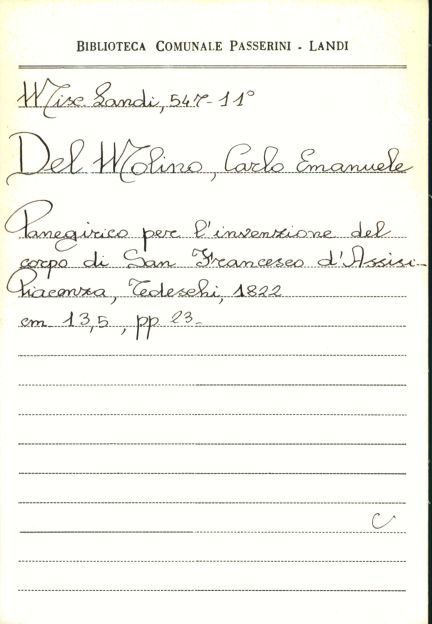 BIBLIOTECA COMUNALE PASSERINI - LANDI
Misc. Landi, 547-11°
Del Molino, Carlo Emanuele
Panegirico per l'invenzione del
corpo di San Francesco d'Assisi-
Piacenza, Tedeschi, 1822
cm 13,5, pp 23-
C